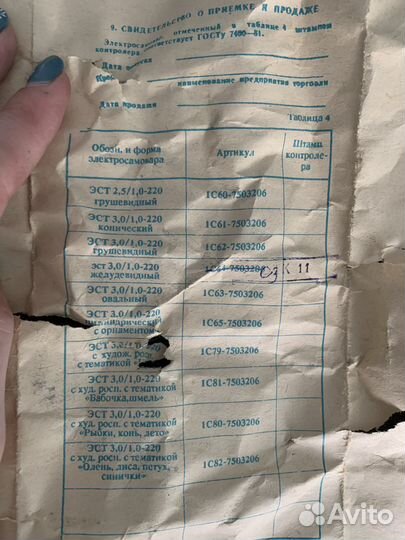 9. СВИДЕТЕЛЬСТВО О ПРИЕМКЕ И ПРОДАЖЕ
Электросамовар, отмеченный в таблице 4 штампом
контролера соответствует ГОСТу 7400—81.
Дата
наименование предприятия торговли
Дата продажи
Таблица 4
Обозн. и форма электросамовара
Артикул
Штамп контроле-ра
ЭСТ 2,5/1,0-220 грушевидный
1С60-7503206
ЭСТ 3,0/1,0-220 конический
1С61-7503206
ЭСТ 3,0/1,0-220 грушевидный
1С62-7503206
ЭСТ 3,0/1,0-220 желудевидный
1С64-7503206
К 11
ЭСТ 3,0/1,0-220 овальный
1С63-7503206
ЭСТ 3,0/1,0-220 цилиндрический с орнаментом
1С65-7503206
ЭСТ 3,0/1,0-220 с худож. росп. с тематикой
1С79-7503206
ЭСТ 3,0/1,0-220 с худ. росп. с тематикой «Бабочка,шмель»
1С81-7503206
ЭСТ 3,0/1,0-220 с худ. росп. с тематикой «Рыбки, конь, лето»
1С80-7503206
ЭСТ 3,0/1,0-220 с худ. росп. с тематикой «Олень, лиса, петух, синички»
1С82-7503206
Avito